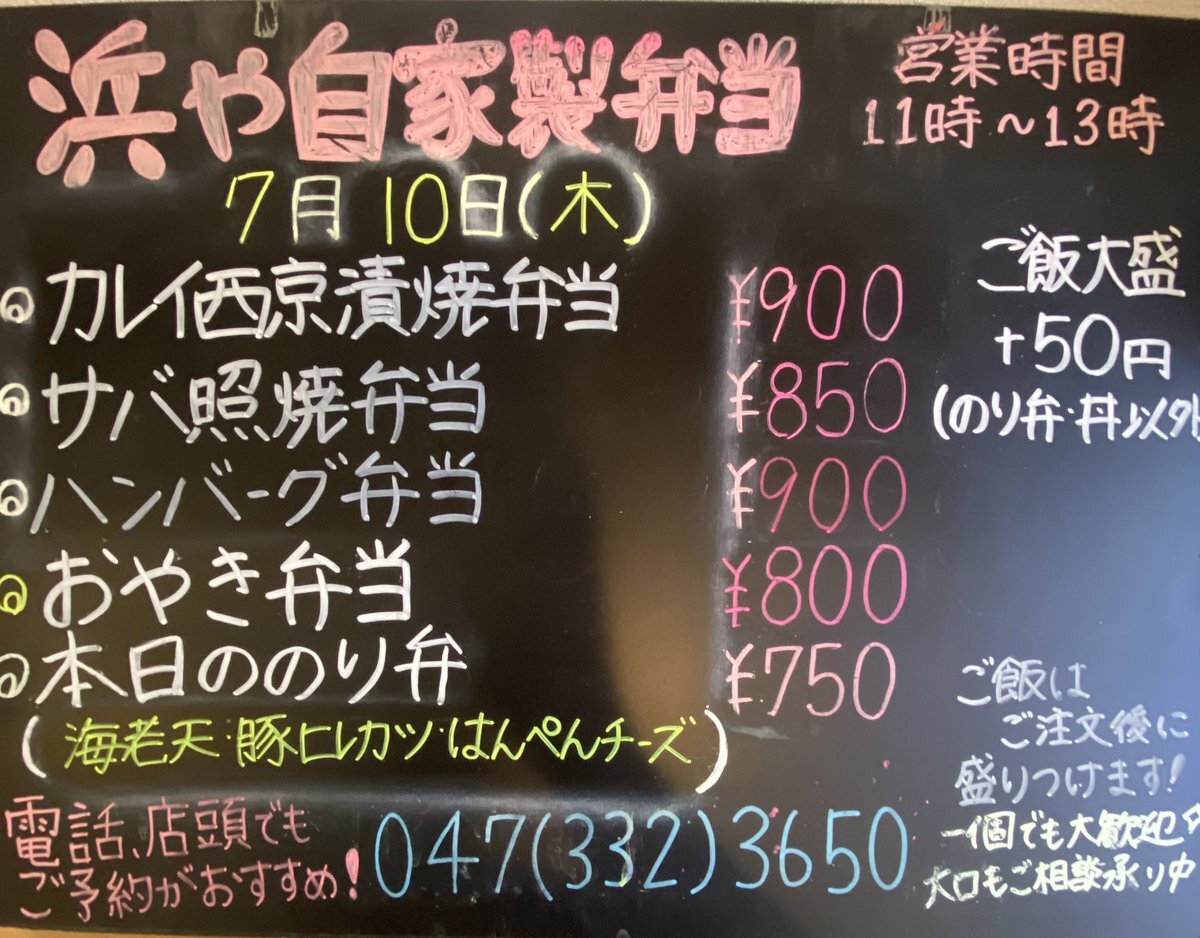 浜や自家製弁当
営業時間
11時～13時
7月10日(木)
◎カレイ西京漬焼弁当 ¥900
◎サバ照焼弁当 ¥850
◎ハンバーグ弁当 ¥900
◎おやき弁当 ¥800
◎本日ののり弁 ¥750
(海老天・豚ヒレカツ・はんぺんチーズ)
ご飯大盛
+50円
(のり弁・丼以外
ご飯は
ご注文後に
盛りつけます!
一個でも大歓迎
大口もご相談承り中
電話、店頭でも
ご予約がおすすめ!
047(332)3650